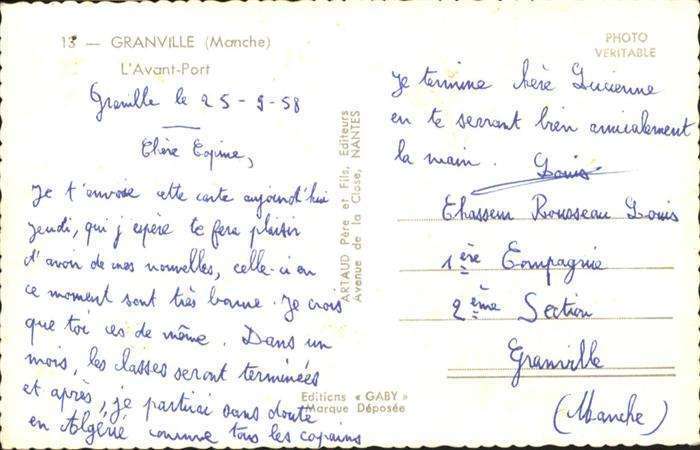 13 — GRANVILLE (Manche)
L'Avant-Port
Granville le 25-9-58
Chère Copine,
Je t'envoie cette carte aujourd'hui
jeudi, qui j'espère te fera plaisir
d'avoir de mes nouvelles, celle-ci en
ce moment sont très bonne. Je crois
que toi ces de même. Dans un
mois, les classes seront terminées
et après, je partirai sans doute
en Algérie comme tous les copains
ARTAUD Père et Fils, Editeurs
Avenue de la Close, NANTES
Editions « GABY »
Marque Déposée
PHOTO
VERITABLE
Je termine chère Lucienne
en te serrant bien amicalement
la main. Louis
Chasseur Rousseau Louis
1ère Compagnie
2ème Section
Granville
(Manche)